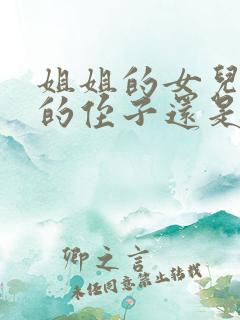 姐姐的女兒
的侄子還是
卿之言
未经同意禁止转载